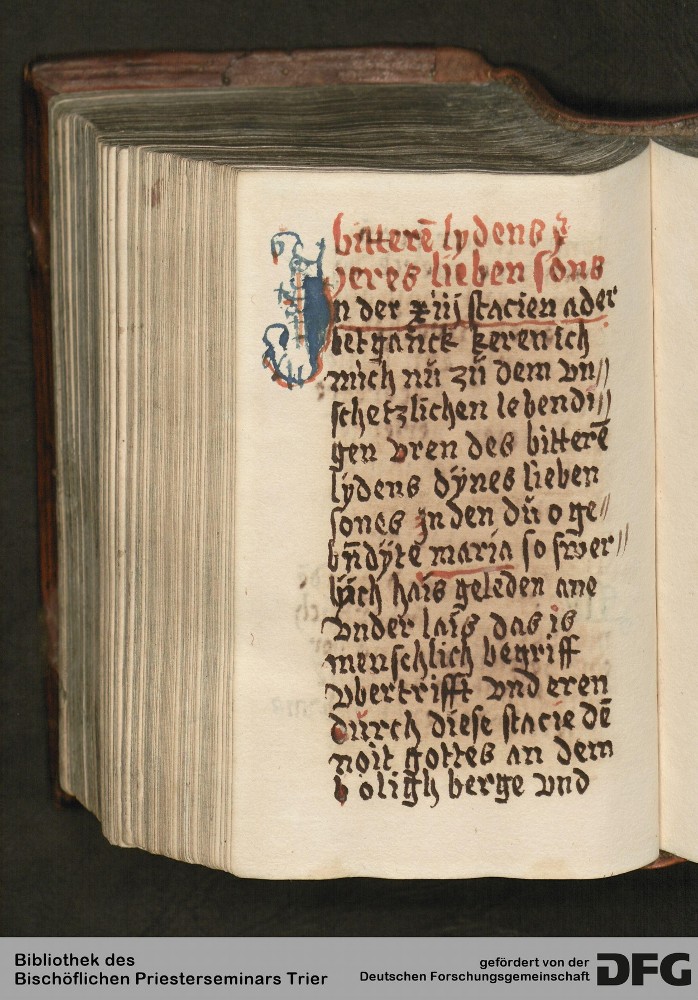 bitterē lydens ÿ
yeres lieben sons
In der xiiij stacien ader
betganck keren ich
mich nü zü dem vn//
schetzlichen lebendi//
gen vren des bitterē
lÿdens dÿnes lieben
sones in den dü o ge//
bn̄dÿte maria so swer//
lÿch hais geleden ane
vnder lais das is
menschlich begriff
vbertrifft vnd eren
dürch diese stacie dē
noit gottes an dem
oligh berge vnd
Bibliothek des
Bischöflichen Priesterseminars Trier
gefördert von der
Deutschen Forschungsgemeinschaft
DFG